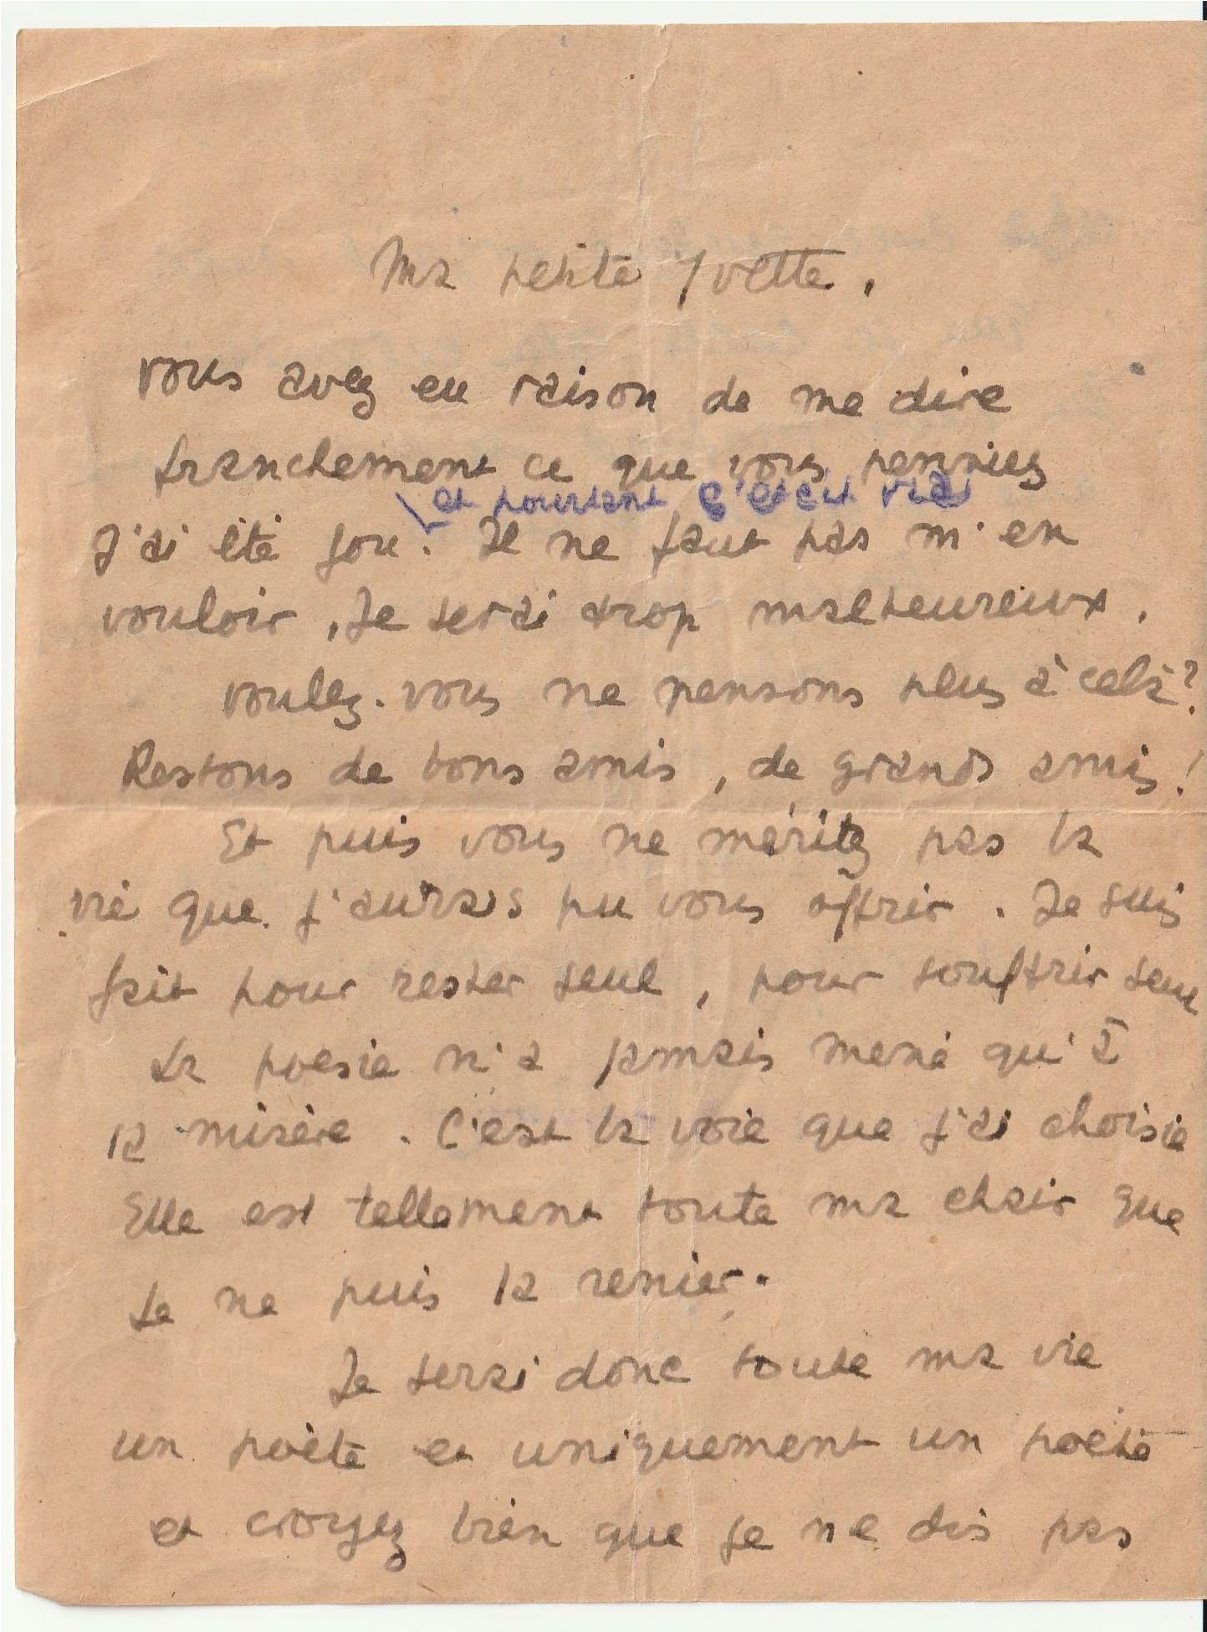 Ma petite Yvette.
vous avez eu raison de me dire
franchement ce que vous pensiez
et pourtant c'était vrai
J'ai été fou. Il ne faut pas m'en
vouloir, Je serai trop malheureux.
voulez-vous ne pensons plus à celà?
Restons de bons amis, de grands amis!
Et puis vous ne méritez pas la
vie que j'aurais pu vous offrir. Je suis
fait pour rester seul, pour souffrir seul
La poésie n'a jamais mené qu'à
la misère. C'est la voie que j'ai choisie
Elle est tellement toute ma chair que
Je ne puis la renier.
Je serai donc toute ma vie
un poète et uniquement un poète
et croyez bien que je ne dis pas